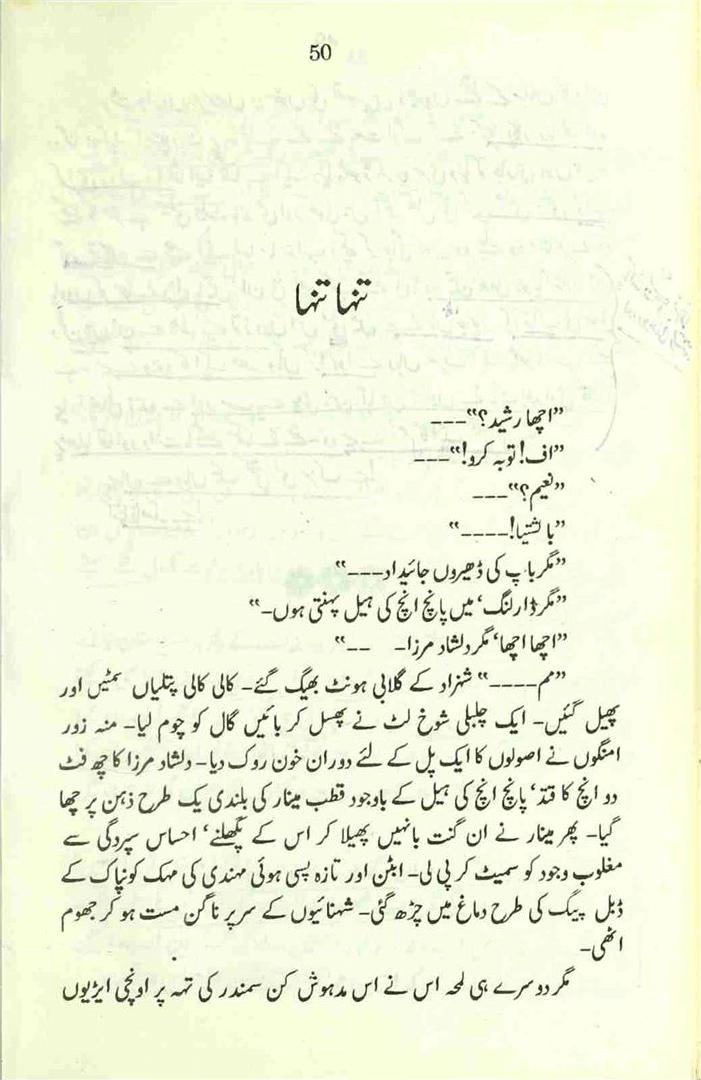 50
تنہا تنہا
”اچھا رشید؟“---
”اف! توبہ کرو!“---
”نعیم؟“---
”بالشتیا!----“
”مگر باپ کی ڈھیروں جائیداد---“
”مگر ڈارلنگ‘ میں پانچ انچ کی ہیل پہنتی ہوں-“
”اچھا اچھا‘ مگر دلشاد مرزا- --“
”مم----“ شہزاد کے گلابی ہونٹ بھیگ گئے- کالی کالی پتلیاں سمٹیں اور
پھیل گئیں- ایک چلبلی شوخ لٹ نے پھسل کر بائیں گال کو چوم لیا- منہ زور
امنگوں نے اصولوں کا ایک پل کے لئے دوران خون روک دیا- دلشاد مرزا کا چھ فٹ
دو انچ کا قد‘ پانچ انچ کی ہیل کے باوجود قطب مینار کی بلندی یک طرح ذہن پر چھا
گیا- پھر مینار نے ان گنت بانہیں پھیلا کر اس کے پگھلتے‘ احساس سپردگی سے
مغلوب وجود کو سمیٹ کر پی لی- ابٹن اور تازہ پسی ہوئی مہندی کی مہک کونیاک کے
ڈبل پیگ کی طرح دماغ میں چڑھ گئی- شہنائیوں کے سر پر ناگن مست ہو کر جھوم
اٹھی-
مگر دوسرے ہی لمحہ اس نے اس مدہوش کن سمندر کی تہہ پر اونچی ایڑیوں